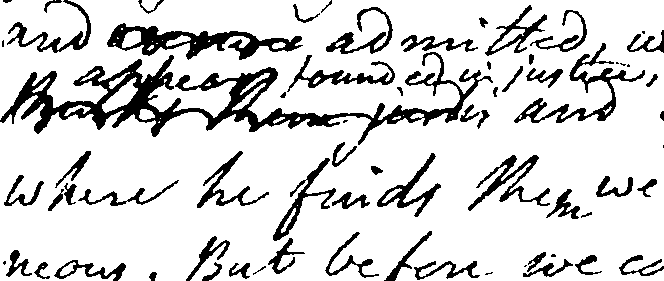 and admitted, w
appear founded in justice,
and
where he finds them we
neous. But before we co